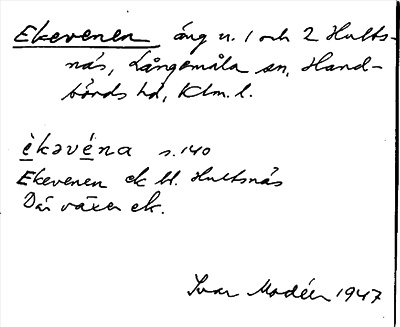 Ekevenen äng n. 1 och 2 Hults-
näs, Långemåla sn, Hand-
börds hd, Klm. l.
èkəvéna s. 140
Ekevenen ek bl. Hultsnäs
Där växer ek.
Ivar Modéer 1947